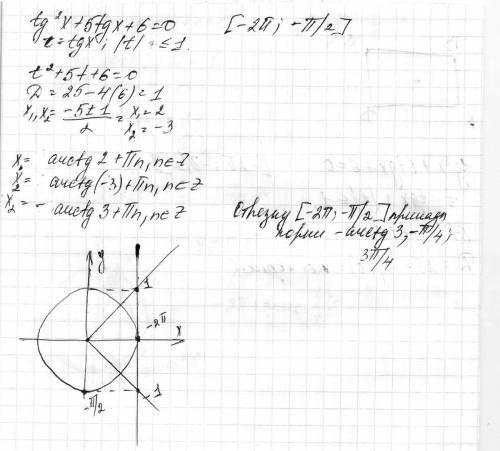 tg²x+5tgx+6=0
[-2π; -π/2]
t=tgx; |t| ≤1.
t²+5t+6=0
D=25-4(6)=1
x₁,x₂=(-5±1)/2= x₁=2
x₂=-3
x= arctg 2+πn, n∈Z
x₂= arctg(-3)+πn, n∈Z
x₂=- arctg 3+πn, n∈Z
Отрезку [-2π; -π/2] принадл
корни -arctg 3, -π/4;
3π/4
y
1
-2π
x
-π/2
-1